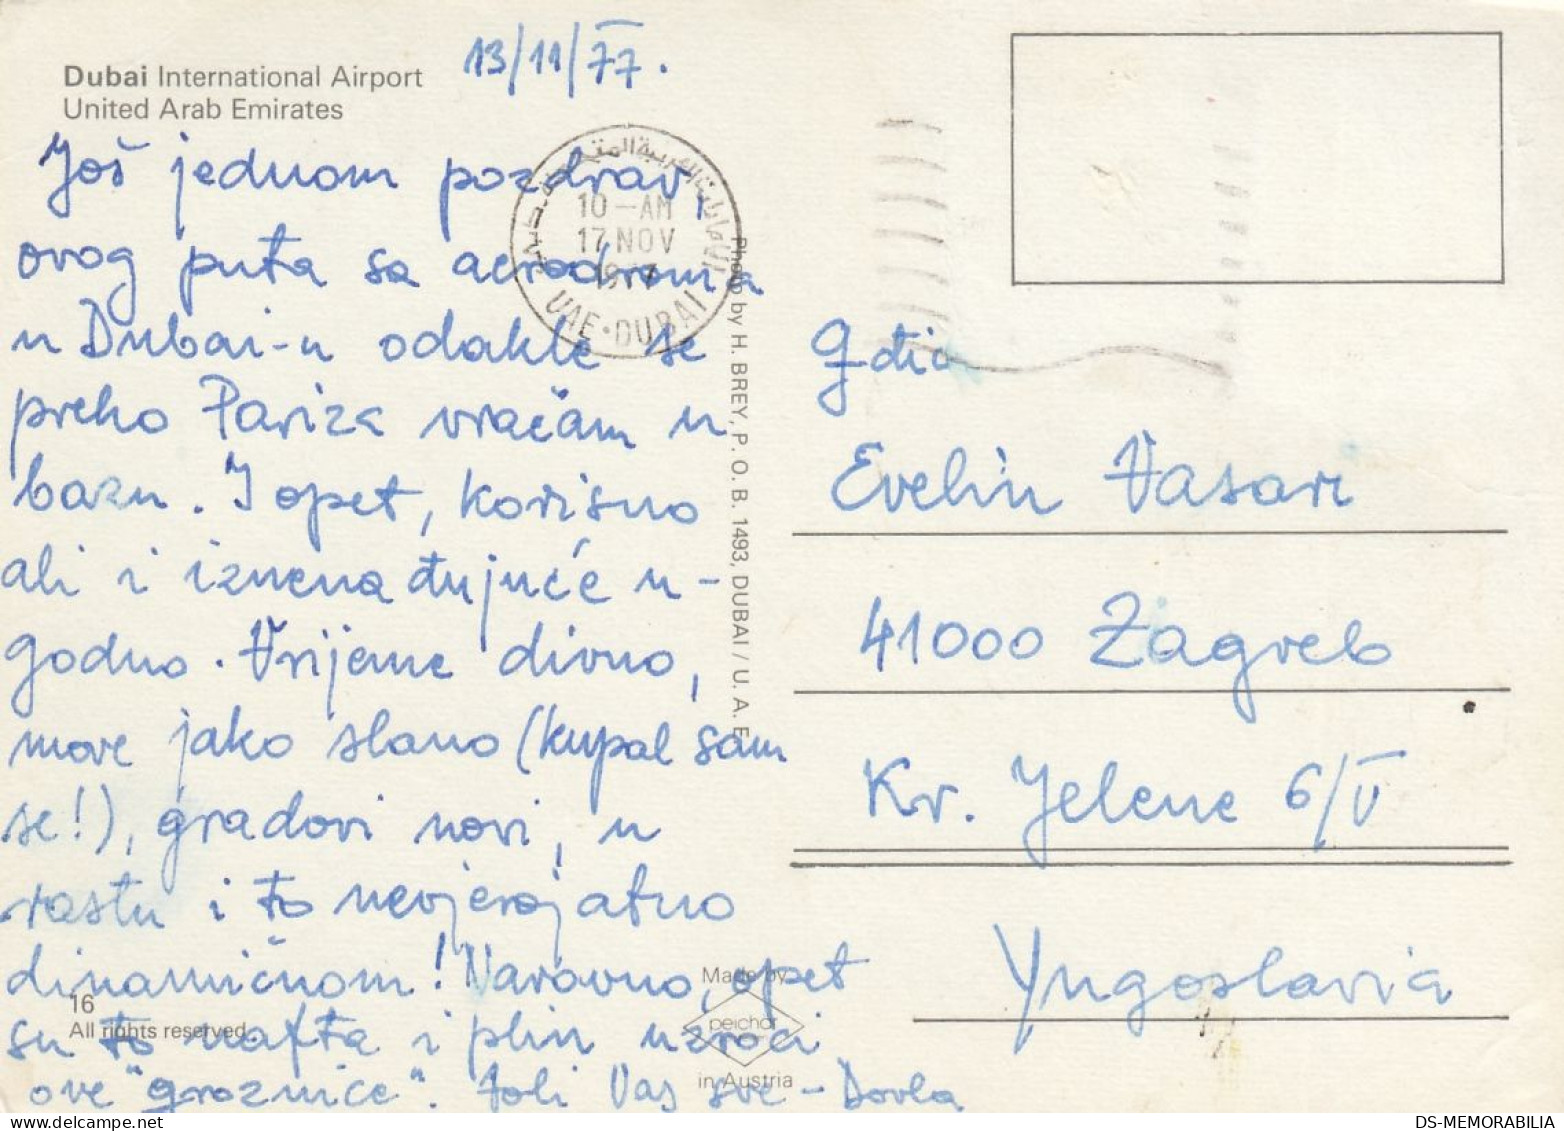 13/11/77.
Dubai International Airport
United Arab Emirates
Još jednom pozdrav,
ovog puta sa aerodroma
u Dubai-u odakle se
preko Pariza vraćam u
bazu. I opet, korisno
ali i iznenađujuće u-
godno. Vrijeme divno,
more jako slano (kupal sam
se!), gradovi novi, u
rastu i to nevjerojatno
dinamičnom! Naravno, opet
su to nafta i plin uzroci
ove "groznice". Voli Vas sve - Dovla
16
All rights reserved
الإمارات العربية المتحدة
10-AM
17 NOV
1977
UAE・DUBAI
Photo by H. BREY, P. O. B. 1493, DUBAI / U. A. E.
Made by
peichär
in Austria
G-đica
Evelin Vasari
41000 Zagreb
Kr. Jelene 6/V
Yugoslavia
DS-MEMORABILIA